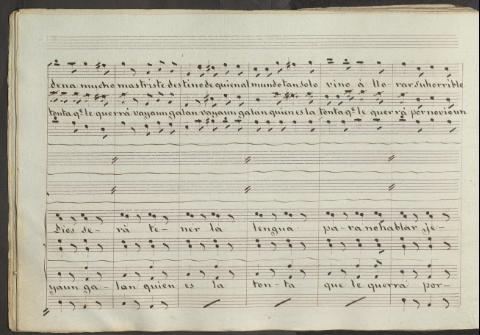 dena mucho mas triste destino de quien al mundo tan solo vino á llo rar su horrible
tonta qe. le querrá vaya un galan vaya un galan quien es la tonta qe. le querrá por novio un
Dios se- rá te- ner la lengua pa- ra no hablar je-
ya un ga- lan quien es la ton- ta que le querrá por-